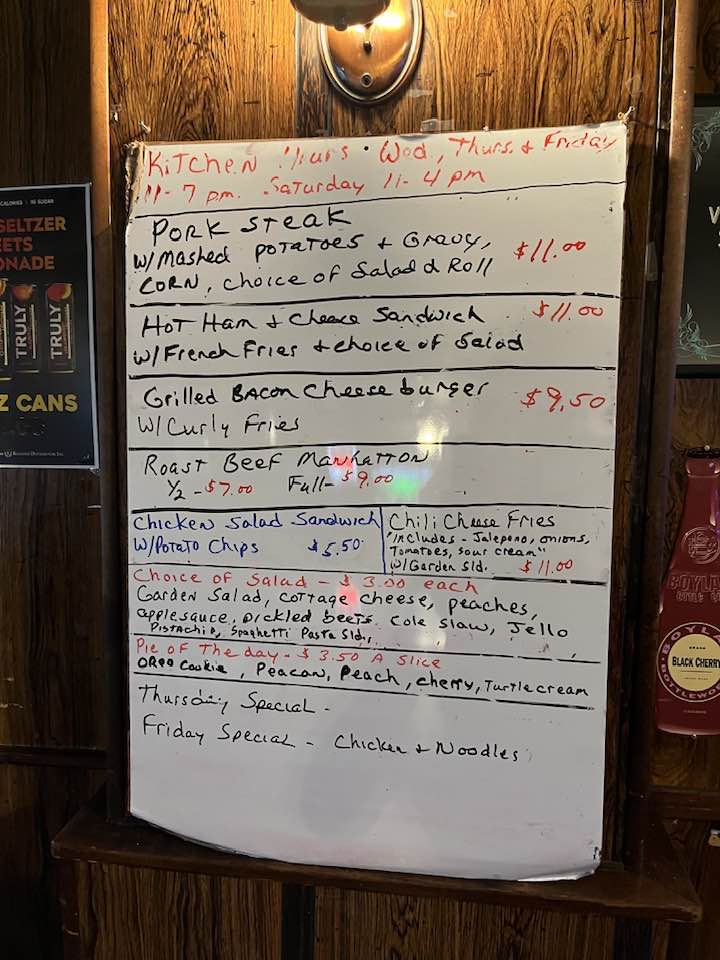 Kitchen Hurs Wod., Thurs. & Friday
11-7 pm. Saturday 11-4 pm
Pork Steak
w/Mashed potatoes & Gravy, $11.00
Corn, choice of Salad & Roll
Hot Ham & Cheese Sandwich $11.00
w/French Fries & choice of Salad
Grilled Bacon Cheeseburger $9.50
w/ Curly Fries
Roast Beef Manhatton
1/2 - $7.00 Full - $9.00
Chicken Salad Sandwich
w/Potato Chips $5.50
Chili Cheese Fries
"includes - Jalepeno, onions,
Tomatoes, sour cream"
w/Garden Sld. $11.00
Choice of Salad - $3.00 each
Garden Salad, cottage cheese, peaches,
applesauce, pickled beets, Cole slaw, Jello
Pistachio, Spaghetti Pasta Sld.,
Pie of The day - $3.50 A Slice
Oreo Cookie, Peacan, Peach, cherry, Turtle cream
Thursday Special -
Friday Special - Chicken & Noodles
SELTZER
ONADE
TRULY
TRULY
Z CANS
BOYLA
BLACK CHERRY